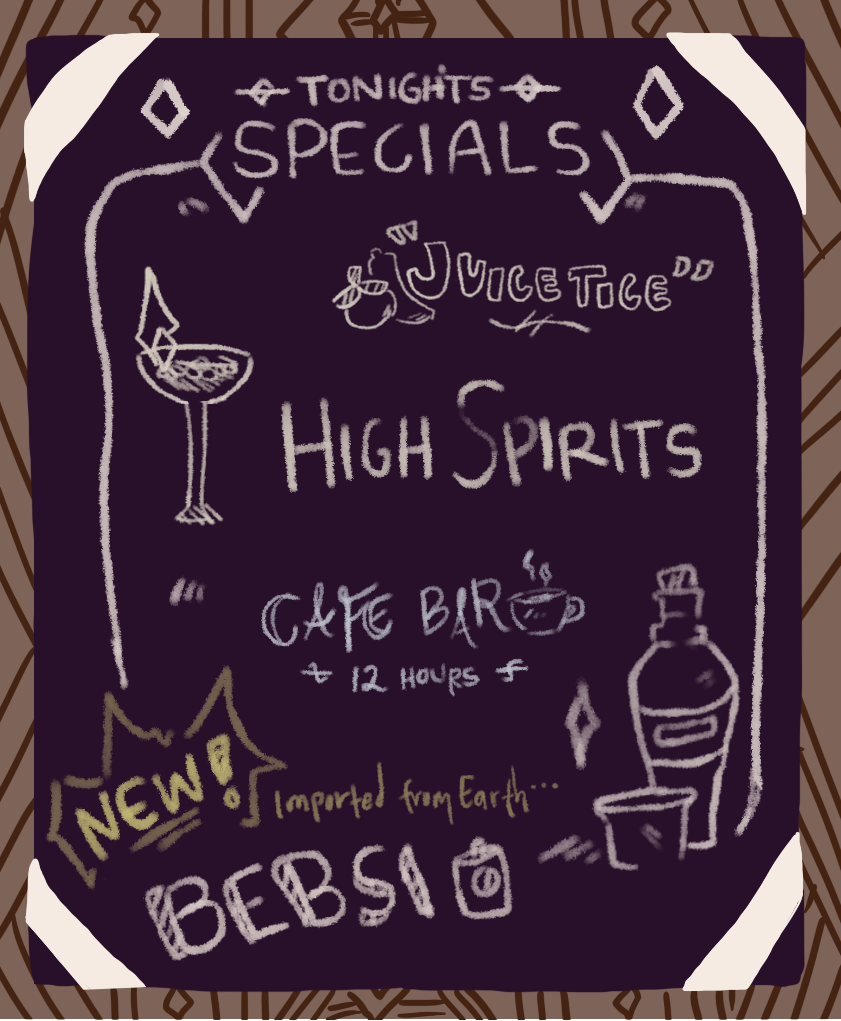 TONIGHTS
SPECIALS
"JUICETICE"
HIGH SPIRITS
CAFE BAR
12 HOURS
NEW!
Imported from Earth...
BEBSI